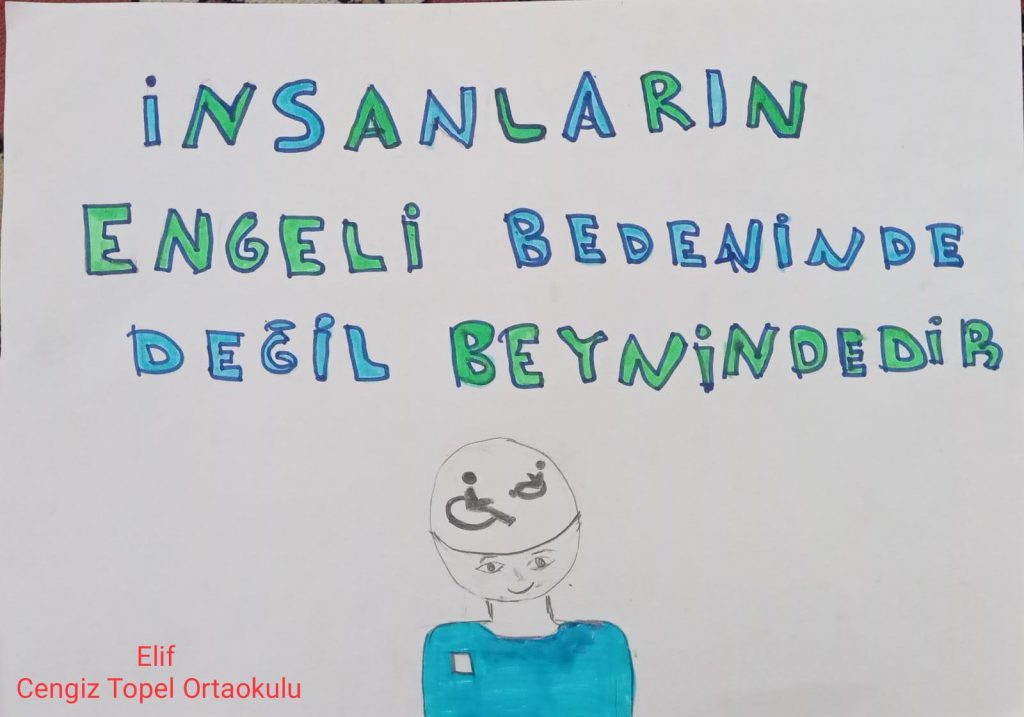 İNSANLARIN
ENGELİ BEDENİNDE
DEĞİL BEYNİNDEDİR
Elif
Cengiz Topel Ortaokulu